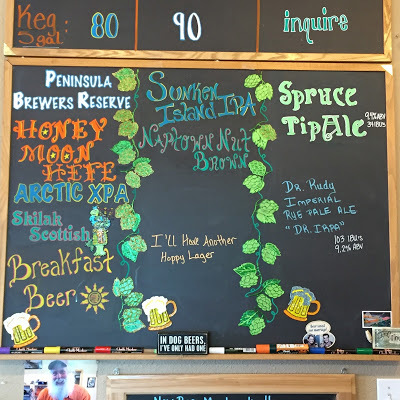 Keg:
5gal:
80
90
inquire
PENINSULA
BREWERS RESERVE
HONEY
MOON
HEFE
ARCTIC XPA
Skilak
Scottish
Breakfast
Beer
Sunken
Island IPA
Naptown Nut
Brown
I'll Have Another
Hoppy Lager
Spruce
Tip Ale
34 IBUS
Dr. Rudy
Imperial
Rye Pale Ale
"Dr. IRPA"
103 IBU's
9.2% ABV
dbu
dbu
dbu
IN DOG BEERS,
I'VE ONLY HAD ONE